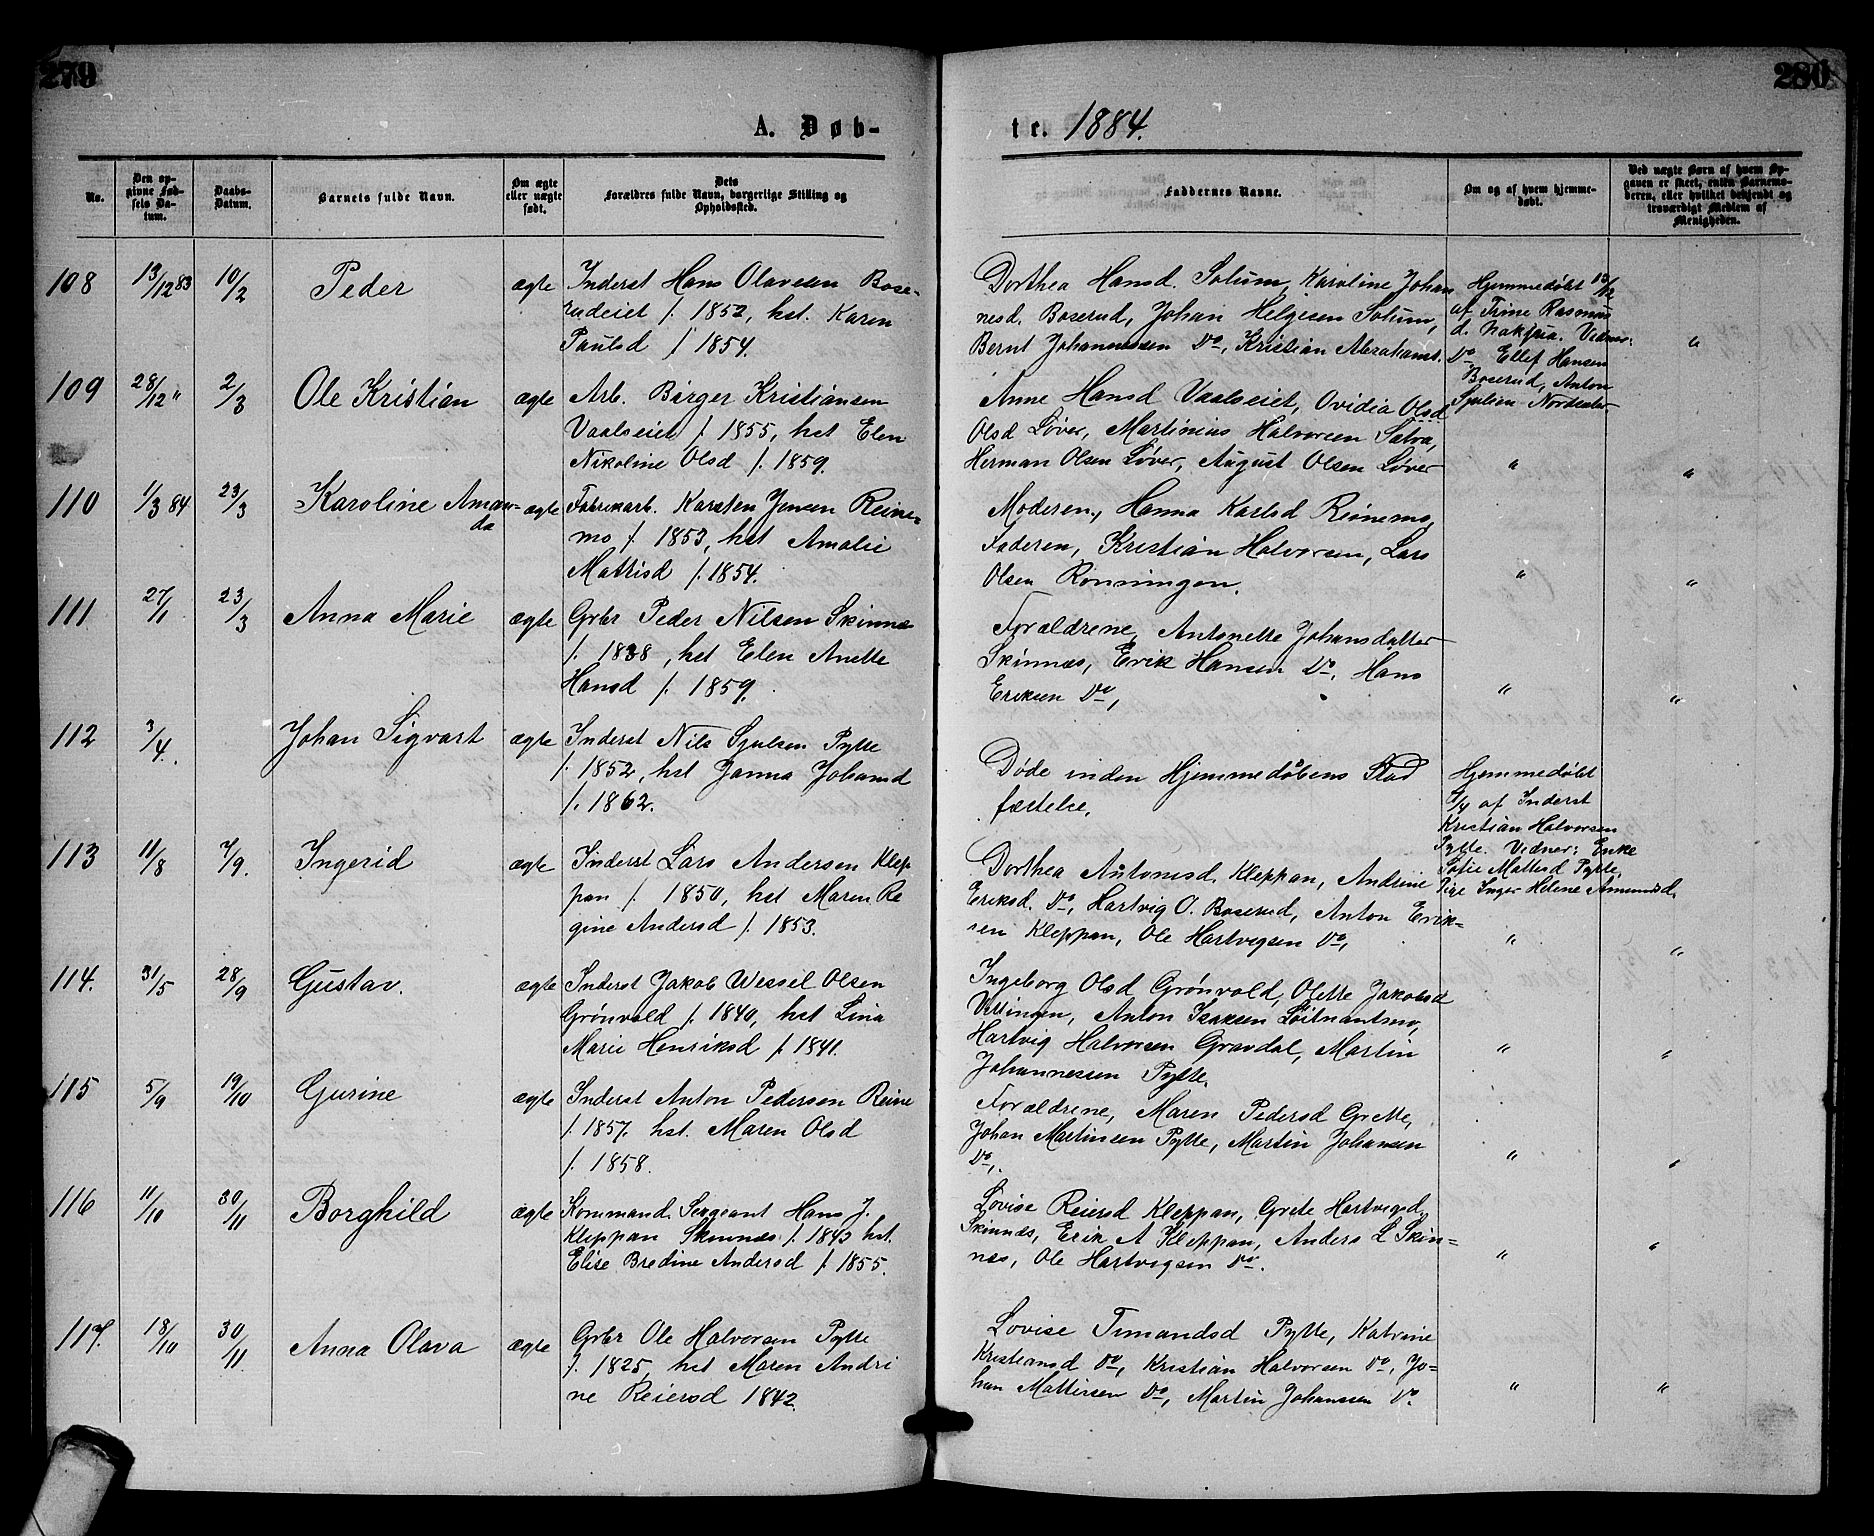 279
280
A. Døb-
te. 1884.
No.
Den opgivne Fødsels Datum.
Daabs-Datum.
Barnets fulde Navn.
Om ægte eller uægte født.
Dets Forældres fulde Navn, borgerlige Stilling og Opholdssted.
Faddernes Navne.
Om og af hvem hjemmedøbt.
Ved uægte Børn af hvem Opgaven er skeet, enten Barnemoderen, eller hvilket bekjendt og troværdigt Medlem af Menigheden.
108 13/12 83 10/2 Peder ægte Inderst Hans Olavesen Bose-
rudeiet f. 1852, hst. Karen
Paulsd f 1854.
Dorthea Hansd. Solum, Karoline Johan
nesd. Boserud, Johan Helgesen Solum,
Bernt Johannessen Do, Kristian Abrahams.
Hjemmedøbt 13/12
af Trine Rasmus
d. Vidner:
Do Ellef Hansen
Boserud, Anton
Julsen
"
109 28/12 " 2/3 Ole Kristian ægte Arb. Birger Kristiansen
Vaalseiet f. 1855, hst Elen
Nikoline Olsd f. 1859.
Anne Hansd Vaalseiet, Ovidia Olsd
Olsd Løver, Martinius Halvorsen Satva,
Herman Olsen Løver, August Olsen Løver
" "
110 1/3 84 23/3 Karoline Aman-
da ægte Fabrikarb. Karsten Jensen Reine-
mo f. 1853, hst Amalie
Mathisd f. 1854.
Moderen, Hanna Karlsd Reinemo,
Faderen, Kristian Halvorsen, Lars
Olsen Rønningen.
" "
111 27/1 23/3 Anna Marie ægte Grbr Peder Nilsen Skinnæs
f. 1838, hst Elen Anette
Hansd f. 1859.
Forældrene, Antonette Johansdatter
Skinnæs, Erik Hansen Do, Hans
Eriksen Do,
" "
112 3/4. Johan Sigvart ægte Inderst Nils Julsen Pytte
f. 1852, hst Janna Johansd
f. 1862.
Døde inden Hjemmedåbens Stad
fæstelse.
Hjemmedøbt
/4 af Inderst
Kristian Halvorsen
Pytte. Vidner: Enke
Sofie Mattisd Pytte,
Pige Inger Helene Amundsd.
113 11/8 7/9. Ingerid ægte Inderst Lars Andersen Klep
pan f. 1850, hst Maren Re
gine Andersd f. 1853.
Dorthea Antonsd. Kleppan, Andrine
Eriksd. Do, Hartvig O. Boserud, Anton Erik-
sen Kleppan, Ole Hartvigsen Do,
" "
114. 31/5 28/9 Gustav. ægte Inderst Jakob Wessel Olsen
Grønvold f. 1840, hst Lina
Marie Henriksd f. 1841.
Ingeborg Olsd Grønvold, Olette Jakobsd
Vettingen, Anton Isaksen Løitnantsmo,
Hartvig Halvorsen Gravdal, Martin
Johannessen Pytte.
" "
115 5/9 19/10 Gurine ægte Inderst Anton Pedersen Reine
f. 1857. hst. Maren Olsd
f. 1858.
Forældrene, Maren Pedersd Grette,
Johan Martinsen Pytte, Martin Johansen
Do,
" "
116 11/10 30/11 Borghild ægte Kommand. Sergeant Hans J.
Kleppan Skinnæs f. 1843 hst.
Elise Bredine Andersd f. 1855.
Lovise Reiersd Kleppan, Grete Hartvigsd
Skinnæs, Erik A Kleppan, Anders L Skin-
næs, Ole Hartvigsen Do.
" "
117. 18/10 30/11. Anna Olava ægte Grbr Ole Halvorsen Pytte
f. 1825, hst Maren Andri
ne Reiersd 1842.
Lovise Tmandsd Pytte, Katrine
Kristiansd Do, Kristian Halvorsen Do, Jo-
han Mattisen Do, Martin Johanssen Do.
" "